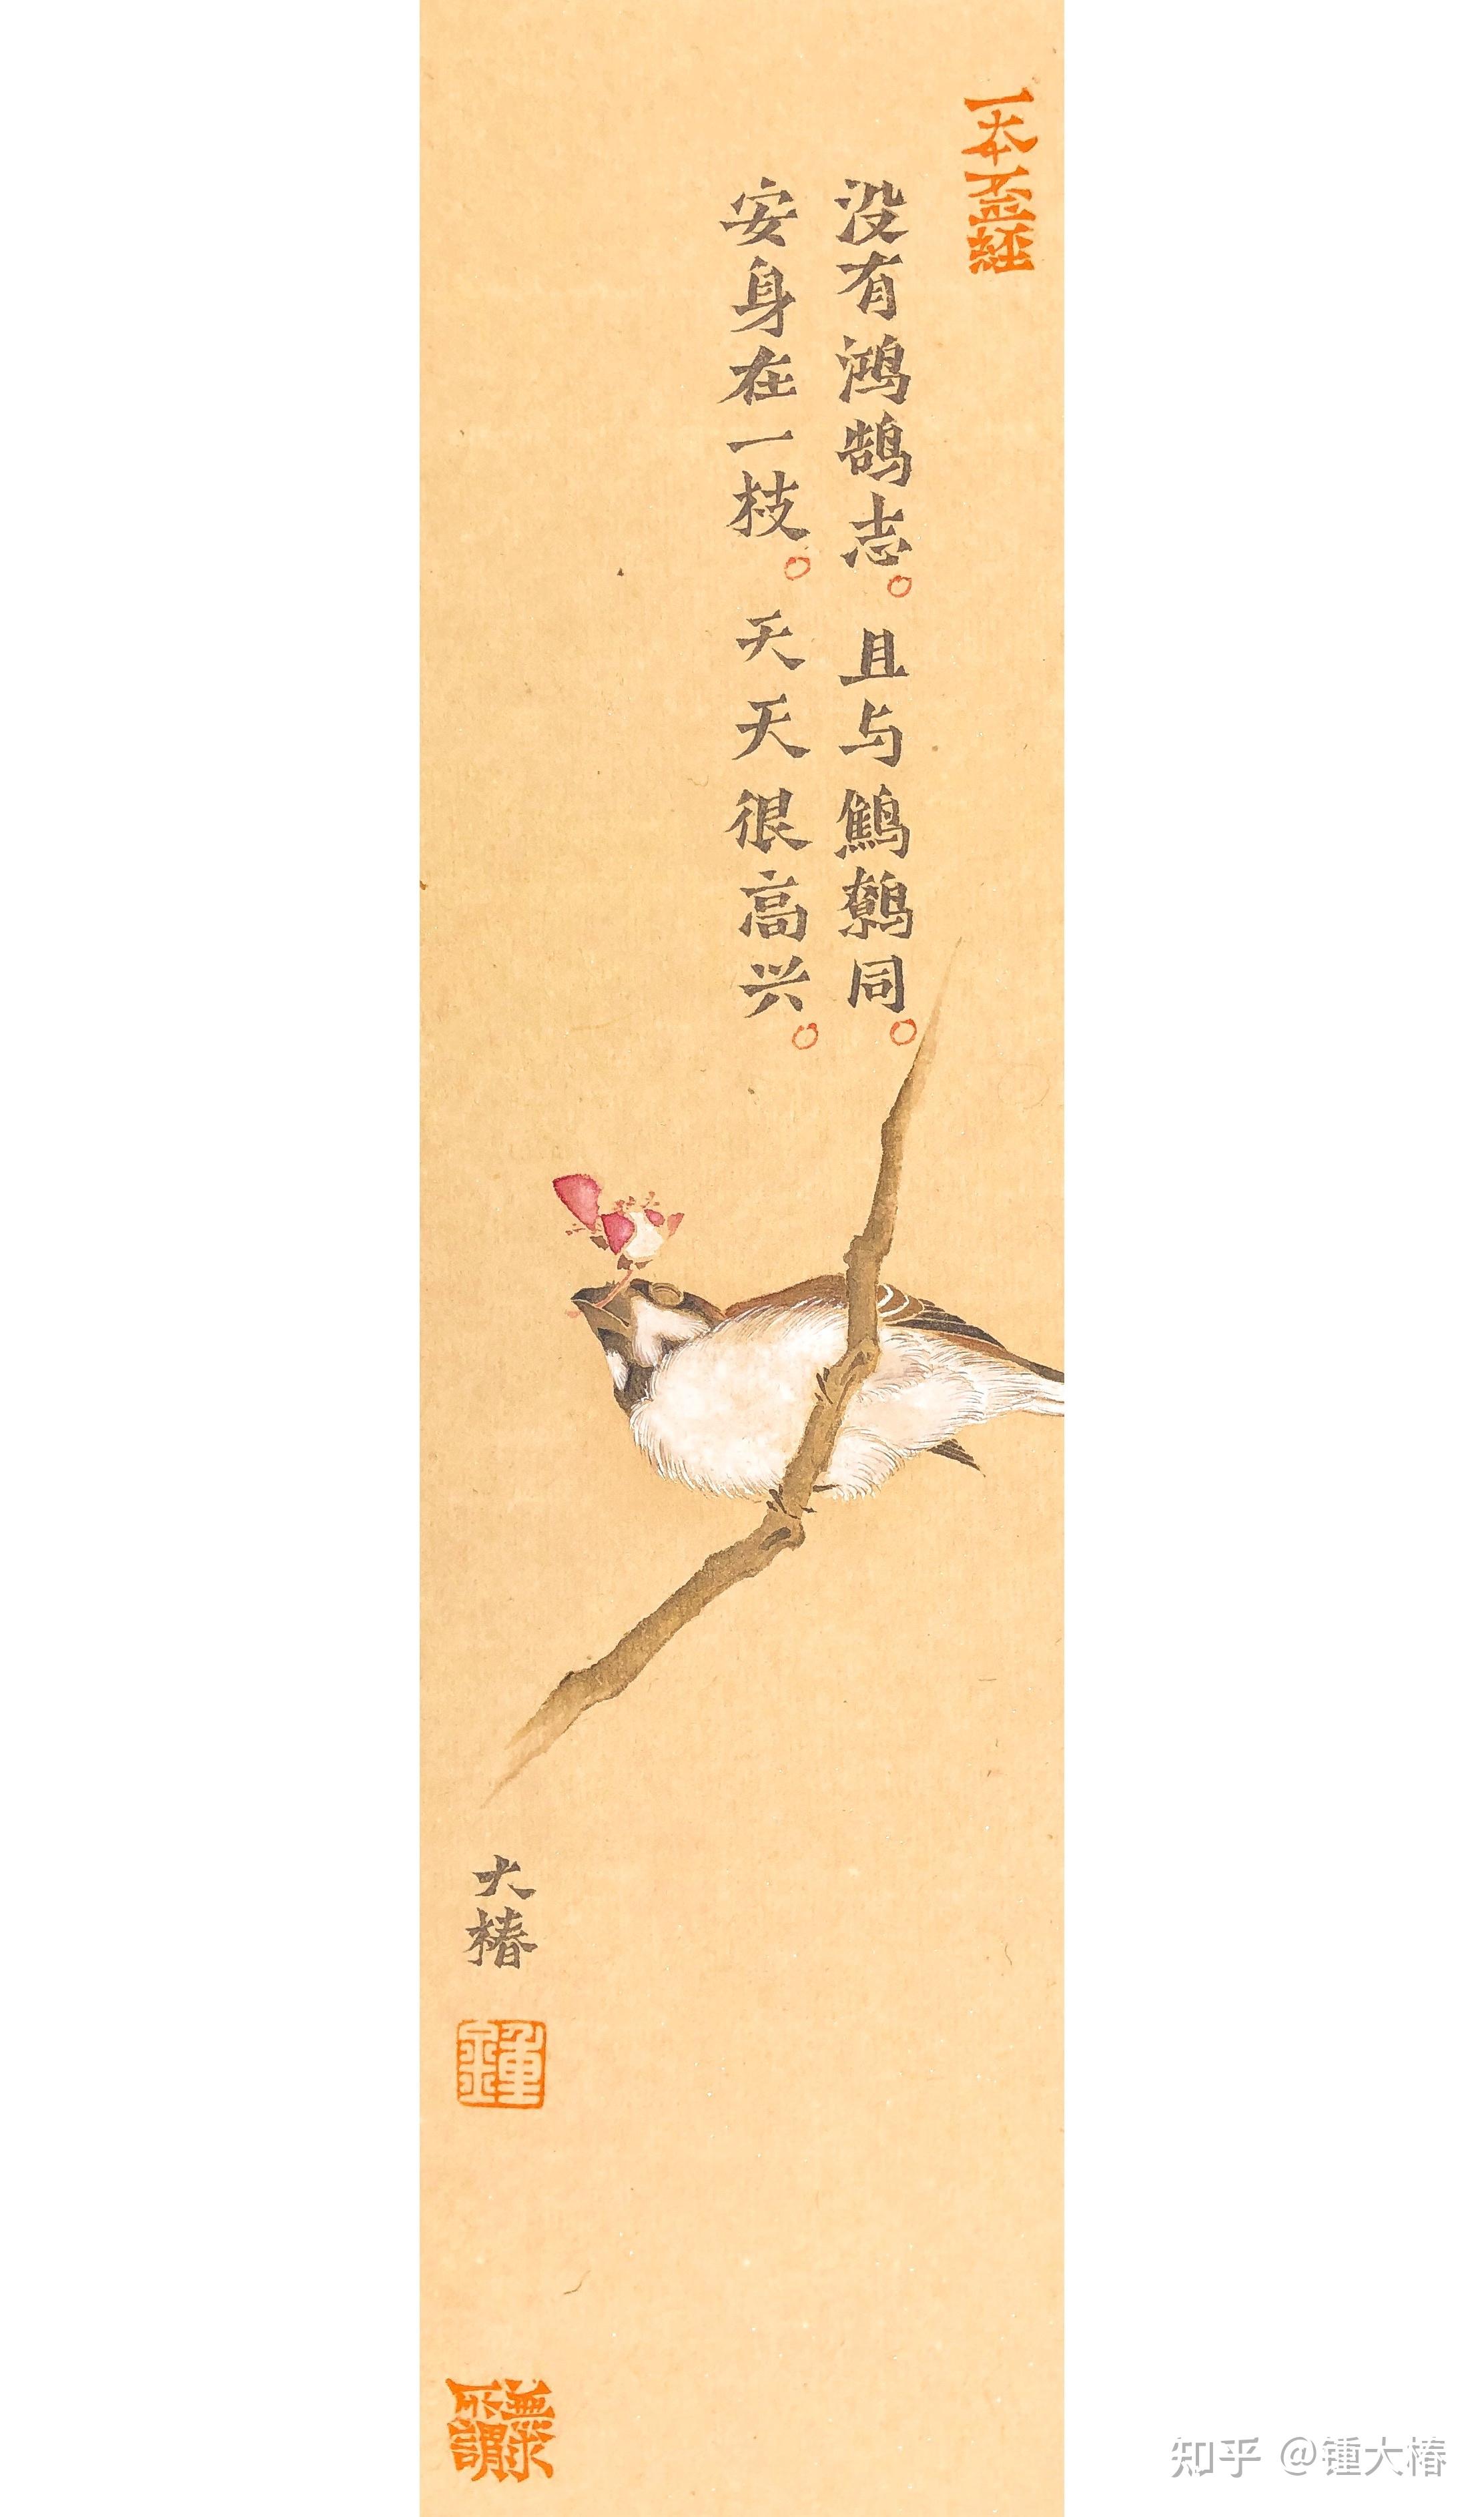 一本歪經
没有鸿鹄志。且与鹪鹩同。
安身在一枝。天天很高兴。
大椿
鍾
知乎 @锺大椿